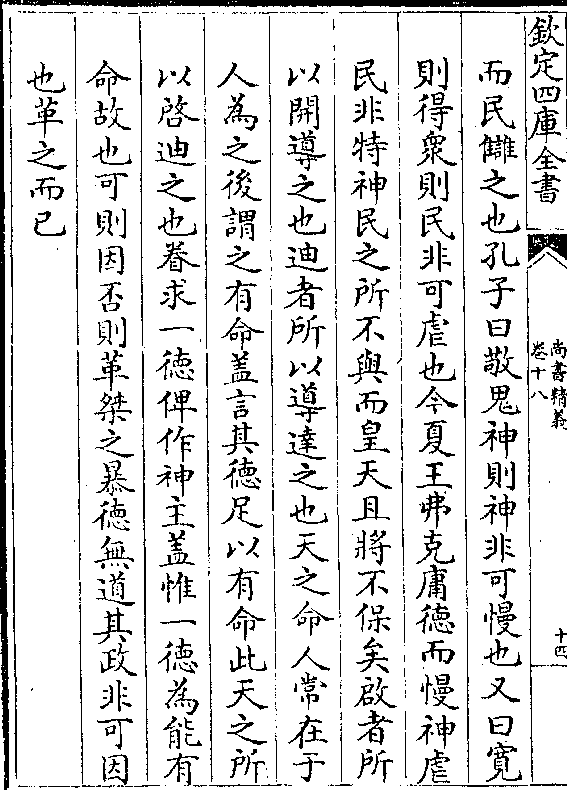 欽定四庫全書
尚書精義
卷十八
十四
而民讎之也孔子曰敬鬼神則神非可慢也又曰寛
則得衆則民非可虐也今夏王弗克庸德而慢神虐
民非特神民之所不與而皇天且將不保矣啟者所
以開導之也迪者所以導達之也天之命人常在于
人為之後謂之有命盖言其德足以有命此天之所
以啓迪之也眷求一德俾作神主盖惟一德為能有
命故也可則因否則革桀之暴德無道其政非可因
也革之而已